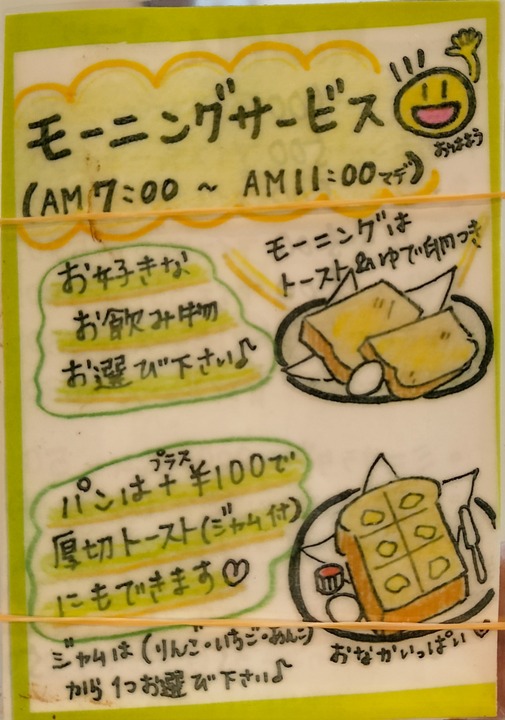 モーニングサービス
おはよう
(AM 7:00 ~ AM11:00マデ)
モーニングは
トースト&ゆで卵つき
お好きな
お飲み物
お選び下さい♪
プラス
パンは+¥100で
厚切トースト(ジャム付)
にもできます♡
ジャムは(りんご・いちご・あんこ)
から1つお選び下さい♪
おなかいっぱい♡